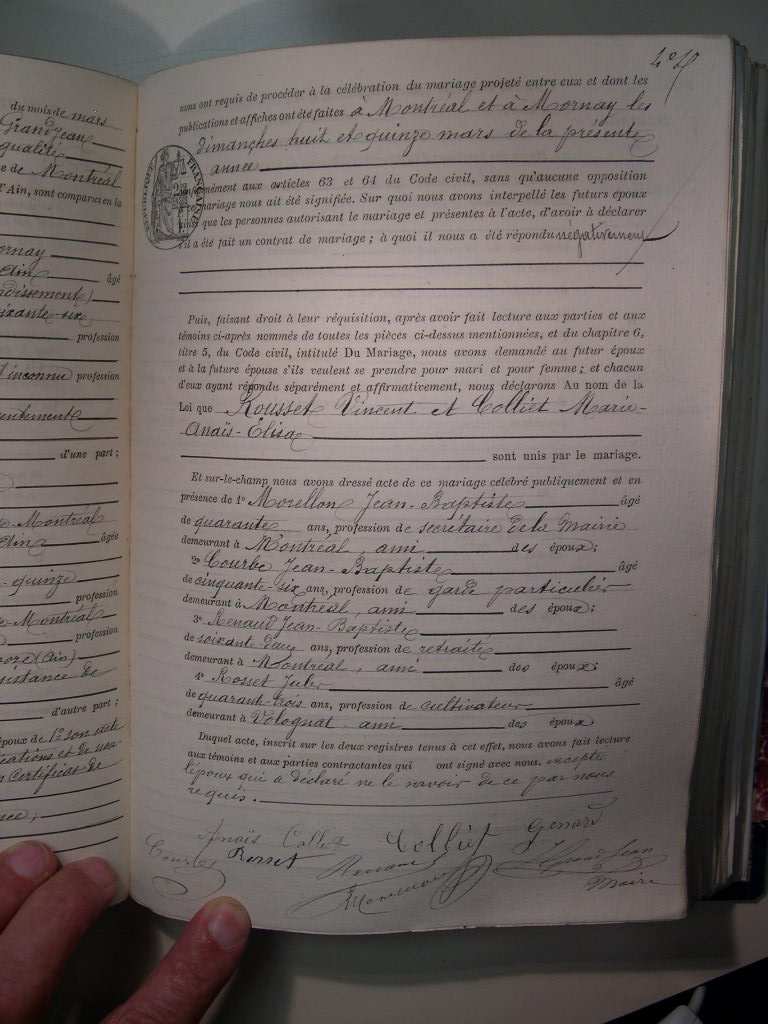 du mois de mars
Grand Jean
qualité
e de Montréal
l'Ain, sont comparus en la
ornay
âgé
ndissement)
oixante-six
profession
d'inconnu profession
d'une part ;
Montréal
âgée
quinze
profession
Montréal
profession
(Ain)
sistance de
d'autre part ;
époux de 1° son acte
cations et de ses
certificat de
4° f
nous ont requis de procéder à la célébration du mariage projeté entre eux et dont les
publications et affiches ont été faites à Montréal et à Mornay les
dimanches huit et quinze mars de la présente
année
RÉPUBLIQUE FRANÇAISE
conformément aux articles 63 et 64 du Code civil, sans qu'aucune opposition
mariage nous ait été signifiée. Sur quoi nous avons interpellé les futurs époux
ainsi que les personnes autorisant le mariage et présentes à l'acte, d'avoir à déclarer
s'il a été fait un contrat de mariage ; à quoi il nous a été répondu négativement
Puis, faisant droit à leur réquisition, après avoir fait lecture aux parties et aux
témoins ci-après nommés de toutes les pièces ci-dessus mentionnées, et du chapitre 6,
titre 5, du Code civil, intitulé Du Mariage, nous avons demandé au futur époux
et à la future épouse s'ils veulent se prendre pour mari et pour femme ; et chacun
d'eux ayant répondu séparément et affirmativement, nous déclarons Au nom de la
Loi que Rousset Vincent et Colliet Marie-
Anaïs-Elisa
sont unis par le mariage.
Et sur-le-champ nous avons dressé acte de ce mariage célébré publiquement et en
présence de 1° Morellon Jean-Baptiste âgé
de quarante ans, profession de secrétaire de la Mairie
demeurant à Montréal, ami des époux ;
2° Courbe Jean-Baptiste âgé
de cinquante six ans, profession de garde particulier
demeurant à Montréal, ami des époux ;
3° Renaud Jean-Baptiste
de soixante deux ans, profession de retraité
demeurant à Montréal, ami des époux ;
4° Rosset Jules âgé
de quarante-trois ans, profession de cultivateur
demeurant à Volognat ami des époux
Duquel acte, inscrit sur les deux registres tenus à cet effet, nous avons fait lecture
aux témoins et aux parties contractantes qui ont signé avec nous, excepté
l'époux qui a déclaré ne le savoir de ce par nous
requis.
Anaïs Colliet Colliet
Courbe Rosset Renaud Grand Jean
Maire